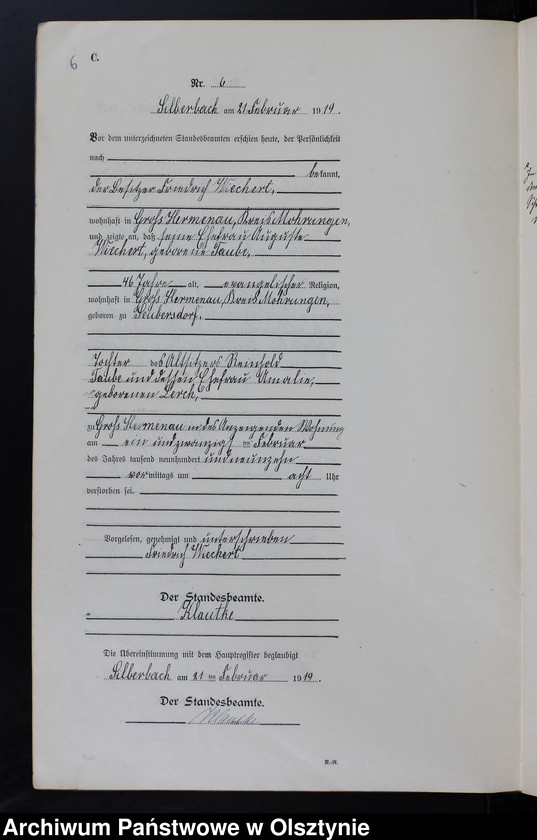 6
C.
Nr. 6
Silberbach am 21 Februar 1919.
Vor dem unterzeichneten Standesbeamten erschien heute, der Persönlichkeit
nach
bekannt,
der Besitzer Friedrich Wiechert,
wohnhaft in Groß Hermenau, Kreis Mohrungen,
und zeigte an, daß seine Ehefrau Auguste
Wiechert, geborene Taube,
46 Jahre alt, evangelischer Religion,
wohnhaft in Groß Hermenau, Kreis Mohrungen,
geboren zu Seubersdorf,
Tochter des Altsitzers Reinhold
Taube und dessen Ehefrau Amalie,
geborenen Lerch,
zu Groß Hermenau in des Anzeigenden Wohnung
am ein und zwanzigst im Februar
des Jahres tausend neunhundert und neunzehn
vormittags um acht Uhr
verstorben sei.
Vorgelesen, genehmigt und unterschrieben
Friedrich Wiechert
Der Standesbeamte.
Klautke
Die Übereinstimmung mit dem Hauptregister beglaubigt
Silberbach am 21 ten Februar 1919.
Der Standesbeamte.
Klautke
R.-R.
Archiwum Państwowe w Olsztynie